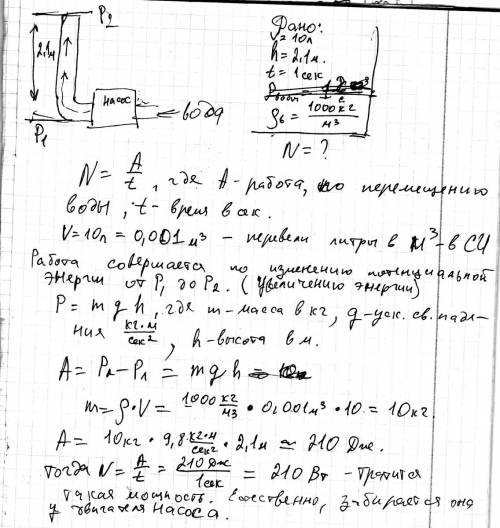 P₂
2,1м
Насос
вода
P₁
Дано:
V=10л
h=2,1м.
t=1сек
ρв = 1000 кг/м³
N=?
N = A/t, где A-работа, по перемещению
воды, t-время в сек.
V=10л = 0,001 м³ – перевели литры в м³-в СИ
Работа совершается по изменению потенциальной
энергии от P₁ до P₂. (увеличению энергии)
P = mgh, где m-масса в кг, g-уск. св. паде-
ния кг·м/сек², h-высота в м.
A = P₂-P₁ = mgh
m = ρ·V = 1000 кг/м³ · 0,001м³ · 10 = 10кг.
A = 10кг · 9,8 кг·м/сек² · 2,1м ≃ 210 Дж.
тогда N = A/t = 210 Дж/1сек = 210 Вт - тратится
такая мощность. Естественно, забирается она
у двигателя насоса.